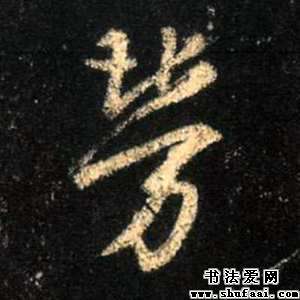 劳
书法爱网
www.shufaai.com